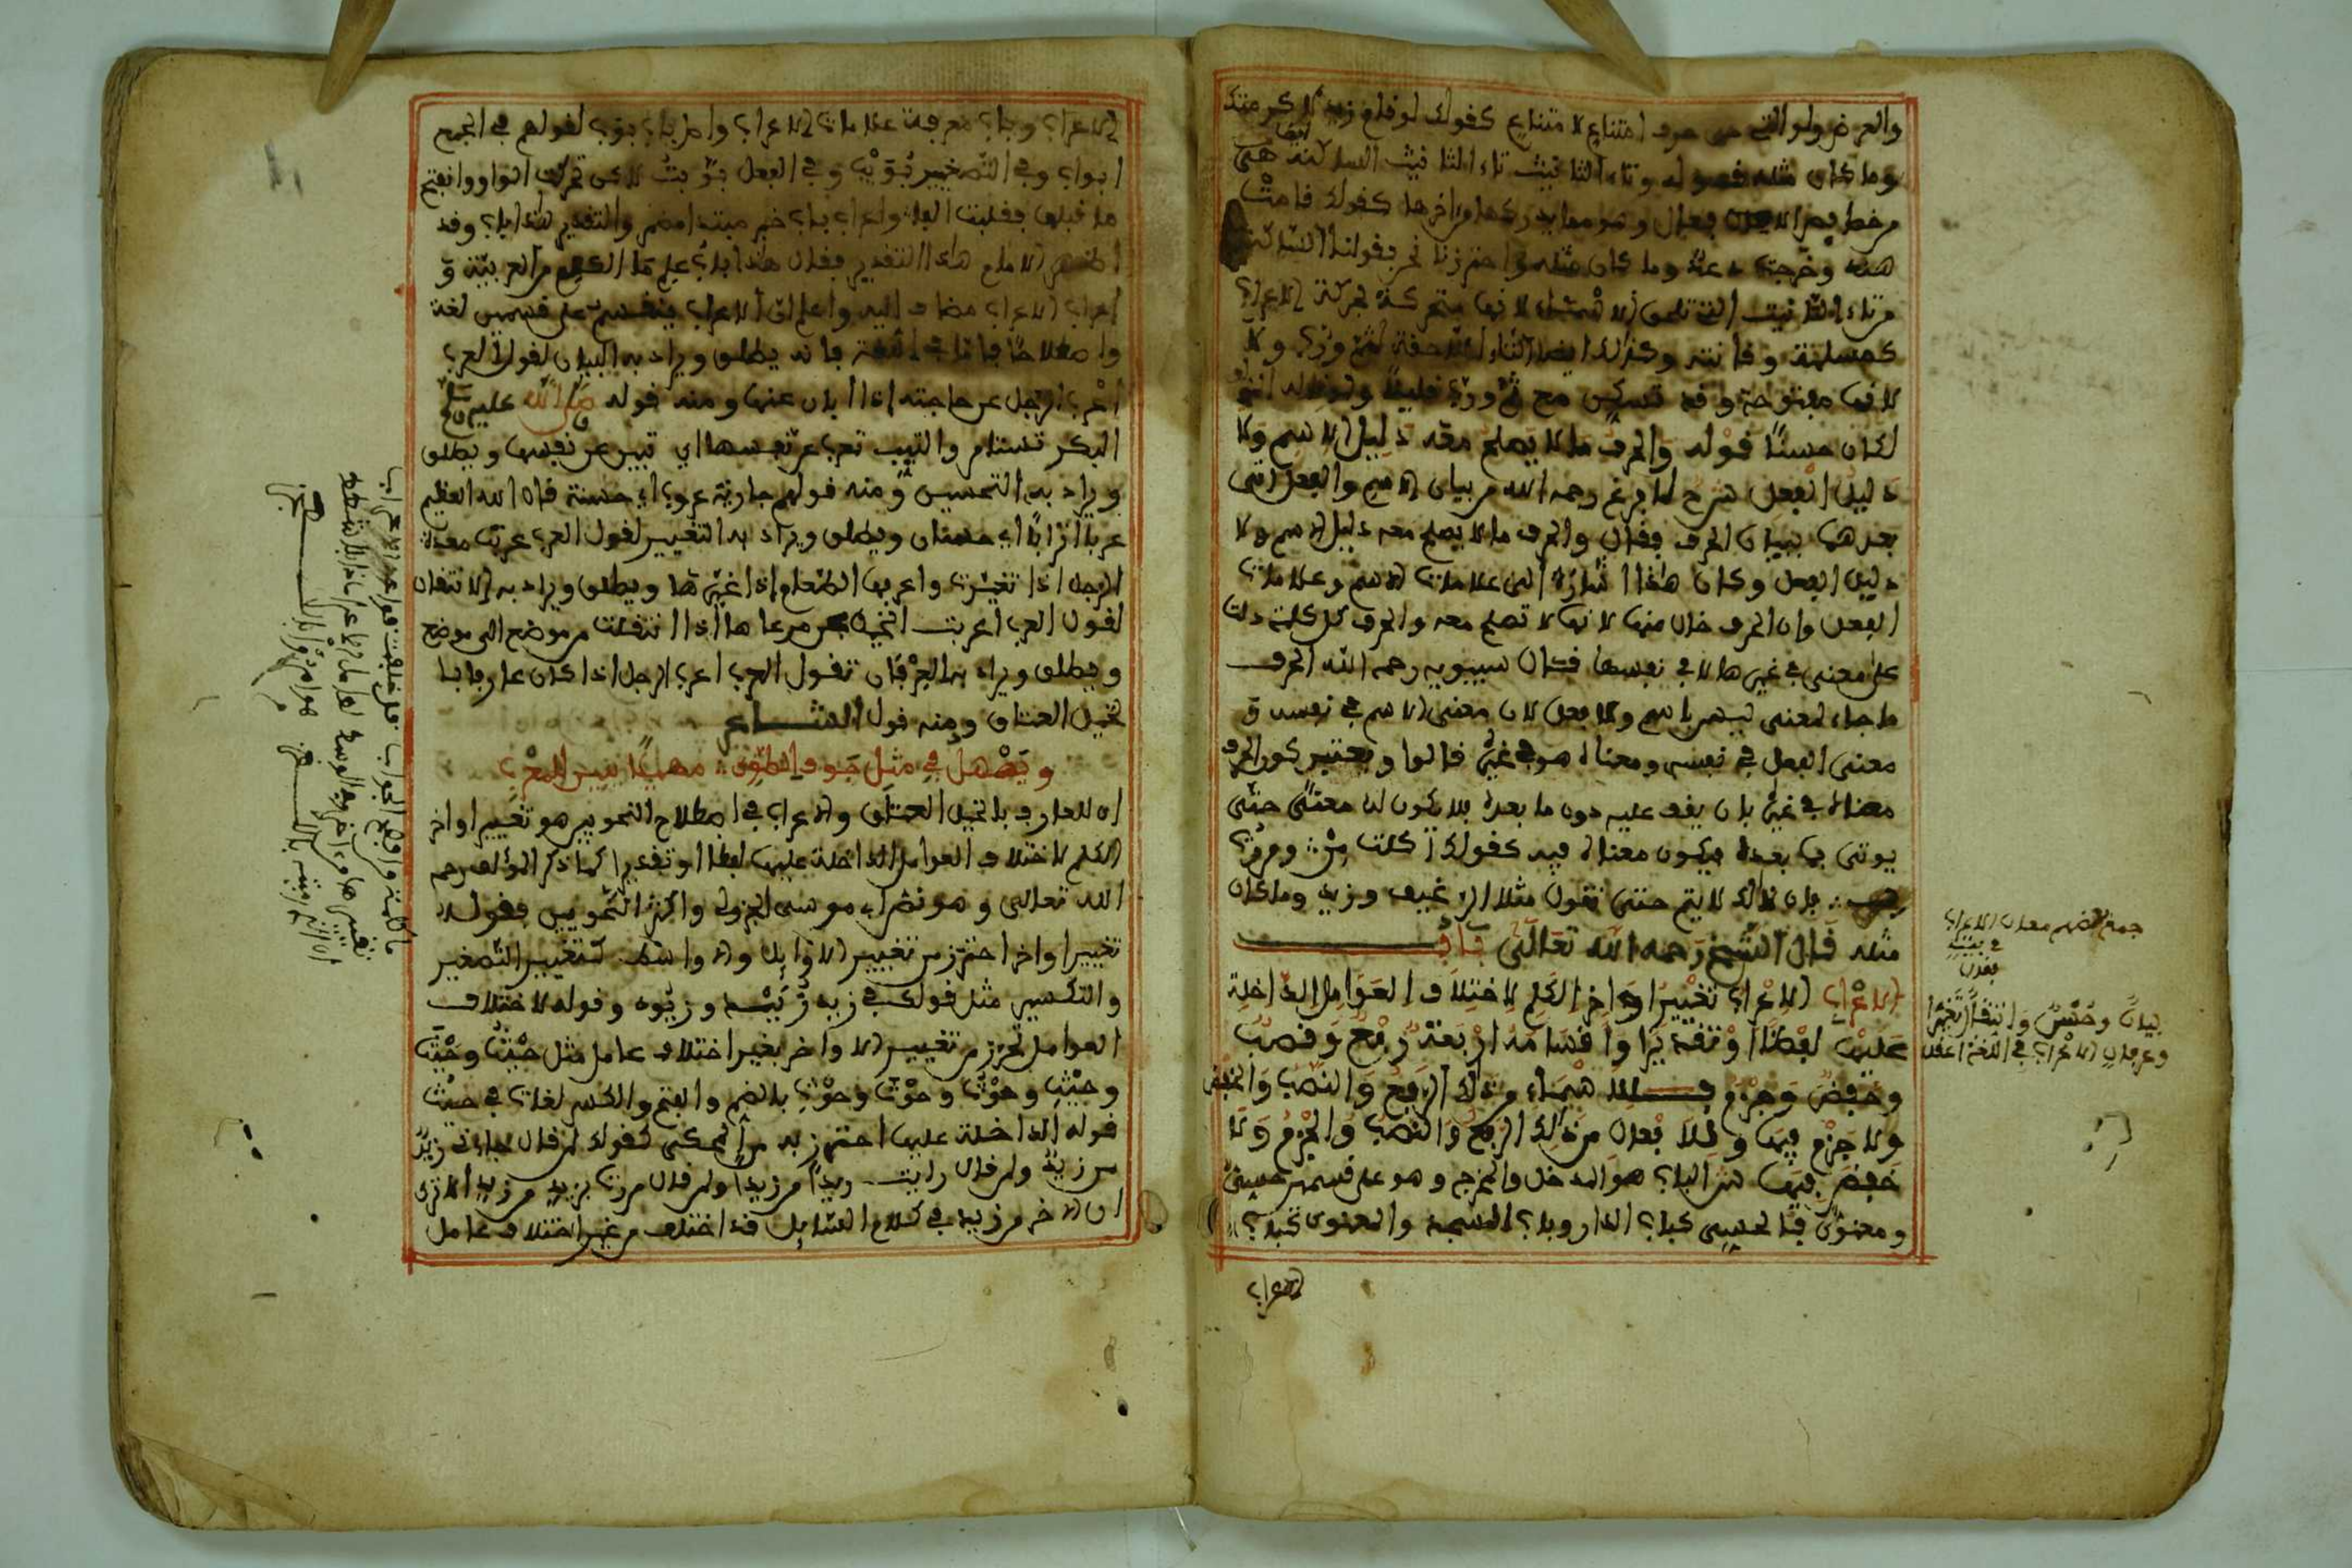 والعرض ولو التي هي حرف امتناع لامتناع كقولك لو قام زيد لاكرمتك
وما كان مثله قوله وتاء التانيث تاء التانيث الساكنة هي
الافعال وهو مما يدركها من اخرها كقولك قامت
هند وخرجت دعد وما كان مثله واحترزنا نحن بقولنا الساكنة
من تاء التانيث التي تلحق الاسماء لانها متحركة بحركة الاعراب
كمسلمة وقائمة وكذلك ايضا التاء اللاحقة لثم ورب ولا
لانها مفتوحة وقد تسكن مع ثم ورب قليلا
لكان حسنا قوله والحرف ما لا يصلح معه دليل الاسم ولا
دليل الفعل شرح لما فرغ رحمه الله من بيان الاسم والفعل اتى
بعدهما ببيان الحرف فقال والحرف ما لا يصلح معه دليل الاسم ولا
دليل الفعل وكان هذا اشارة الى علامات الاسم وعلامات
الفعل وان الحرف خال منها لانها لا تصلح معه والحرف كل كلمة دلت
على معنى في غيرها لا في نفسها فقال سيبويه رحمه الله الحرف
ما جاء لمعنى ليس باسم ولا فعل لان معنى الاسم في نفسه و
معنى الفعل في نفسه ومعناه هو في غيره قالوا ويعتبر كون الحرف
معناه في غيره بان يقف عليه دون ما بعده فلا يكون له معنى حتى
يوتى بما بعده فيكون معناه فيه كقولك اكلت من ومررت
فان ذلك لا يتم حتى تقول مثلا الرغيف وزيد وما كان
مثله قال الشيخ رحمه الله تعالى باب
الاعراب الاعراب تغيير اواخر الكلم لاختلاف العوامل الداخلة
عليها لفظا او تقديرا واقسامه اربعة رفع ونصب
وخفض وجزم فللاسماء من ذلك الرفع والنصب والخفض
ولا جزم فيها وللافعال من ذلك الرفع والنصب والجزم ولا
خفض فيها ش الباب هو المدخل والمخرج وهو على قسمين حسي
ومعنوي فالحسي كباب الدار وباب المسجد والمعنوي كباب
الاعراب
جمع بعضهم معان الاعراب
في بيته
فقال
بيان وحسن وانتقال تغير
وعرفان الاعراب في اللغة اعقلا
الاعراب وباب معرفة علامات الاعراب واصل باب بوب لقولهم في الجمع
ابواب وفي التصغير بويب وفي الفعل بوبت لاكن تحركت الواو وانفتح
ما قبلها فقلبت الفا واعراب باب خبر مبتدا مضمر والتقدير هذا باب وقد
اظهر الامام هذا التقدير فقال هذا باب علم ما الكلم من العربية و
اعراب الاعراب مضاف اليه واعلم ان الاعراب ينقسم على قسمين لغة
واصطلاحا فاما في اللغة فانه يطلق ويراد به البيان لقول العرب
اعرب الرجل عن حاجته اذا ابان عنها ومنه قوله صلى الله عليه وسلم
البكر تستامر والثيب تعرب عن نفسها اي تبين عن نفسها ويطلق
ويراد به التحسين ومنه قولهم جارية عروب اي حسنة قال الله العظيم
عربا اترابا اي حسنات ويطلق ويراد به التغيير لقول العرب عربت معدة
الرجل اذا تغيرت واعربها الطعام اذا غيرها ويطلق ويراد به الانتقال
لقول العرب اعربت الخيل من مرعاها اذا انتقلت من موضع الى موضع
ويطلق ويراد به العرفان تقول العرب اعرب الرجل اذا كان عارفا با
لخيل العتاق ومنه قول الشاعر
ويصهل في مثل جوف الطوي صهيلا يبين للمعرب
اي للعارف بالخيل العتاق والاعراب في اصطلاح النحويين هو تغيير اواخر
الكلم لاختلاف العوامل الداخلة عليها لفظا او تقديرا كما ذكر المؤلف رحمه
الله تعالى وهو نص ابي موسى الجزولي واكثر النحويين فقوله
تغيير اواخر احترز من تغيير الاوايل والاواسط كتغيير التصغير
والتكسير مثل قولك في زيد زييد وزيود وقوله لاختلاف
العوامل تحرز من تغيير الاواخر بغير اختلاف عامل مثل حيث وحيث
وحيث وحوث وحوث وحوث بالضم والفتح والكسر لغات في حيث
قوله الداخلة عليها احترز به من المحكي كقولك لمن قال جاءني زيد
من زيد ولمن قال رايت زيدا من زيدا ولمن قال مررت بزيد من زيد الا ترى
ان الاخر من زيد في كلام السايل قد اختلف من غير اختلاف عامل